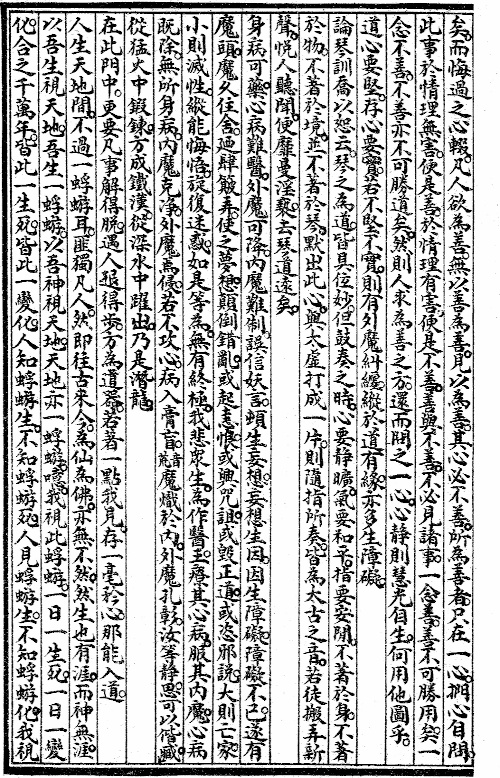 矣而悔過之心輟凡人欲為善無以善為善見以為善其心必不善所為善者只在一心捫心自問
此事於情理無害便是善於情理有害便是不善善與不善不必見諸事一念善善不可勝用矣一
念不善不善亦不可勝道矣然則人求為善之方還而問之一心心靜則慧光自生何用他圖乎
道心要堅存心要實若不堅不實則有外魔糾纏縱於道有緣亦多生障礙
論琴訓喬以恕云琴之為道皆具位妙但鼓奏之時心要靜曠氣要和平指要安閒不著於身不著
於物不著於境並不著於琴默出此心與太虛打成一片則隨指所奏皆為太古之音若徒搬弄新
聲悅人聽聞便靡曼淫褻去琴道遠矣
身病可藥心病難醫外魔可降內魔難制誤信妖言頓生妄想妄想生因因生障礙障礙不已遂有
魔頭魔久住舍迺肆簸弄使之夢想顛倒錯亂或起恚恨或興咒詛或毀正道或恣邪說大則亡家
小則滅性縱能悔悟旋復迷惑如是等為無有終極我悲眾生為作醫王療其心病服其內魔心病
既除無所身病內魔克淨外魔焉侵若不攻心病入膏肓魔熾於內外魔孔彰汝等靜思可以偕臧
從猛火中鍛鍊方成鐵漢從深水中躍出乃是潛龍
在此門中更要凡事解得脫遇人退得步方為道器若著一點我見存一毫矜心那能入道
人生天地間不過一蜉蝣耳匪獨凡人然即往古來今為仙為佛亦無不然然生也有涯而神無涯
以吾生視天地吾生一蜉蝣以吾神視天地天地亦一蜉蝣我視此蜉蝣一日一生死一日一變
化合之千萬年皆此一生死皆此一變化人知蜉蝣生不知蜉蝣死人見蜉蝣生不知蜉蝣化我視